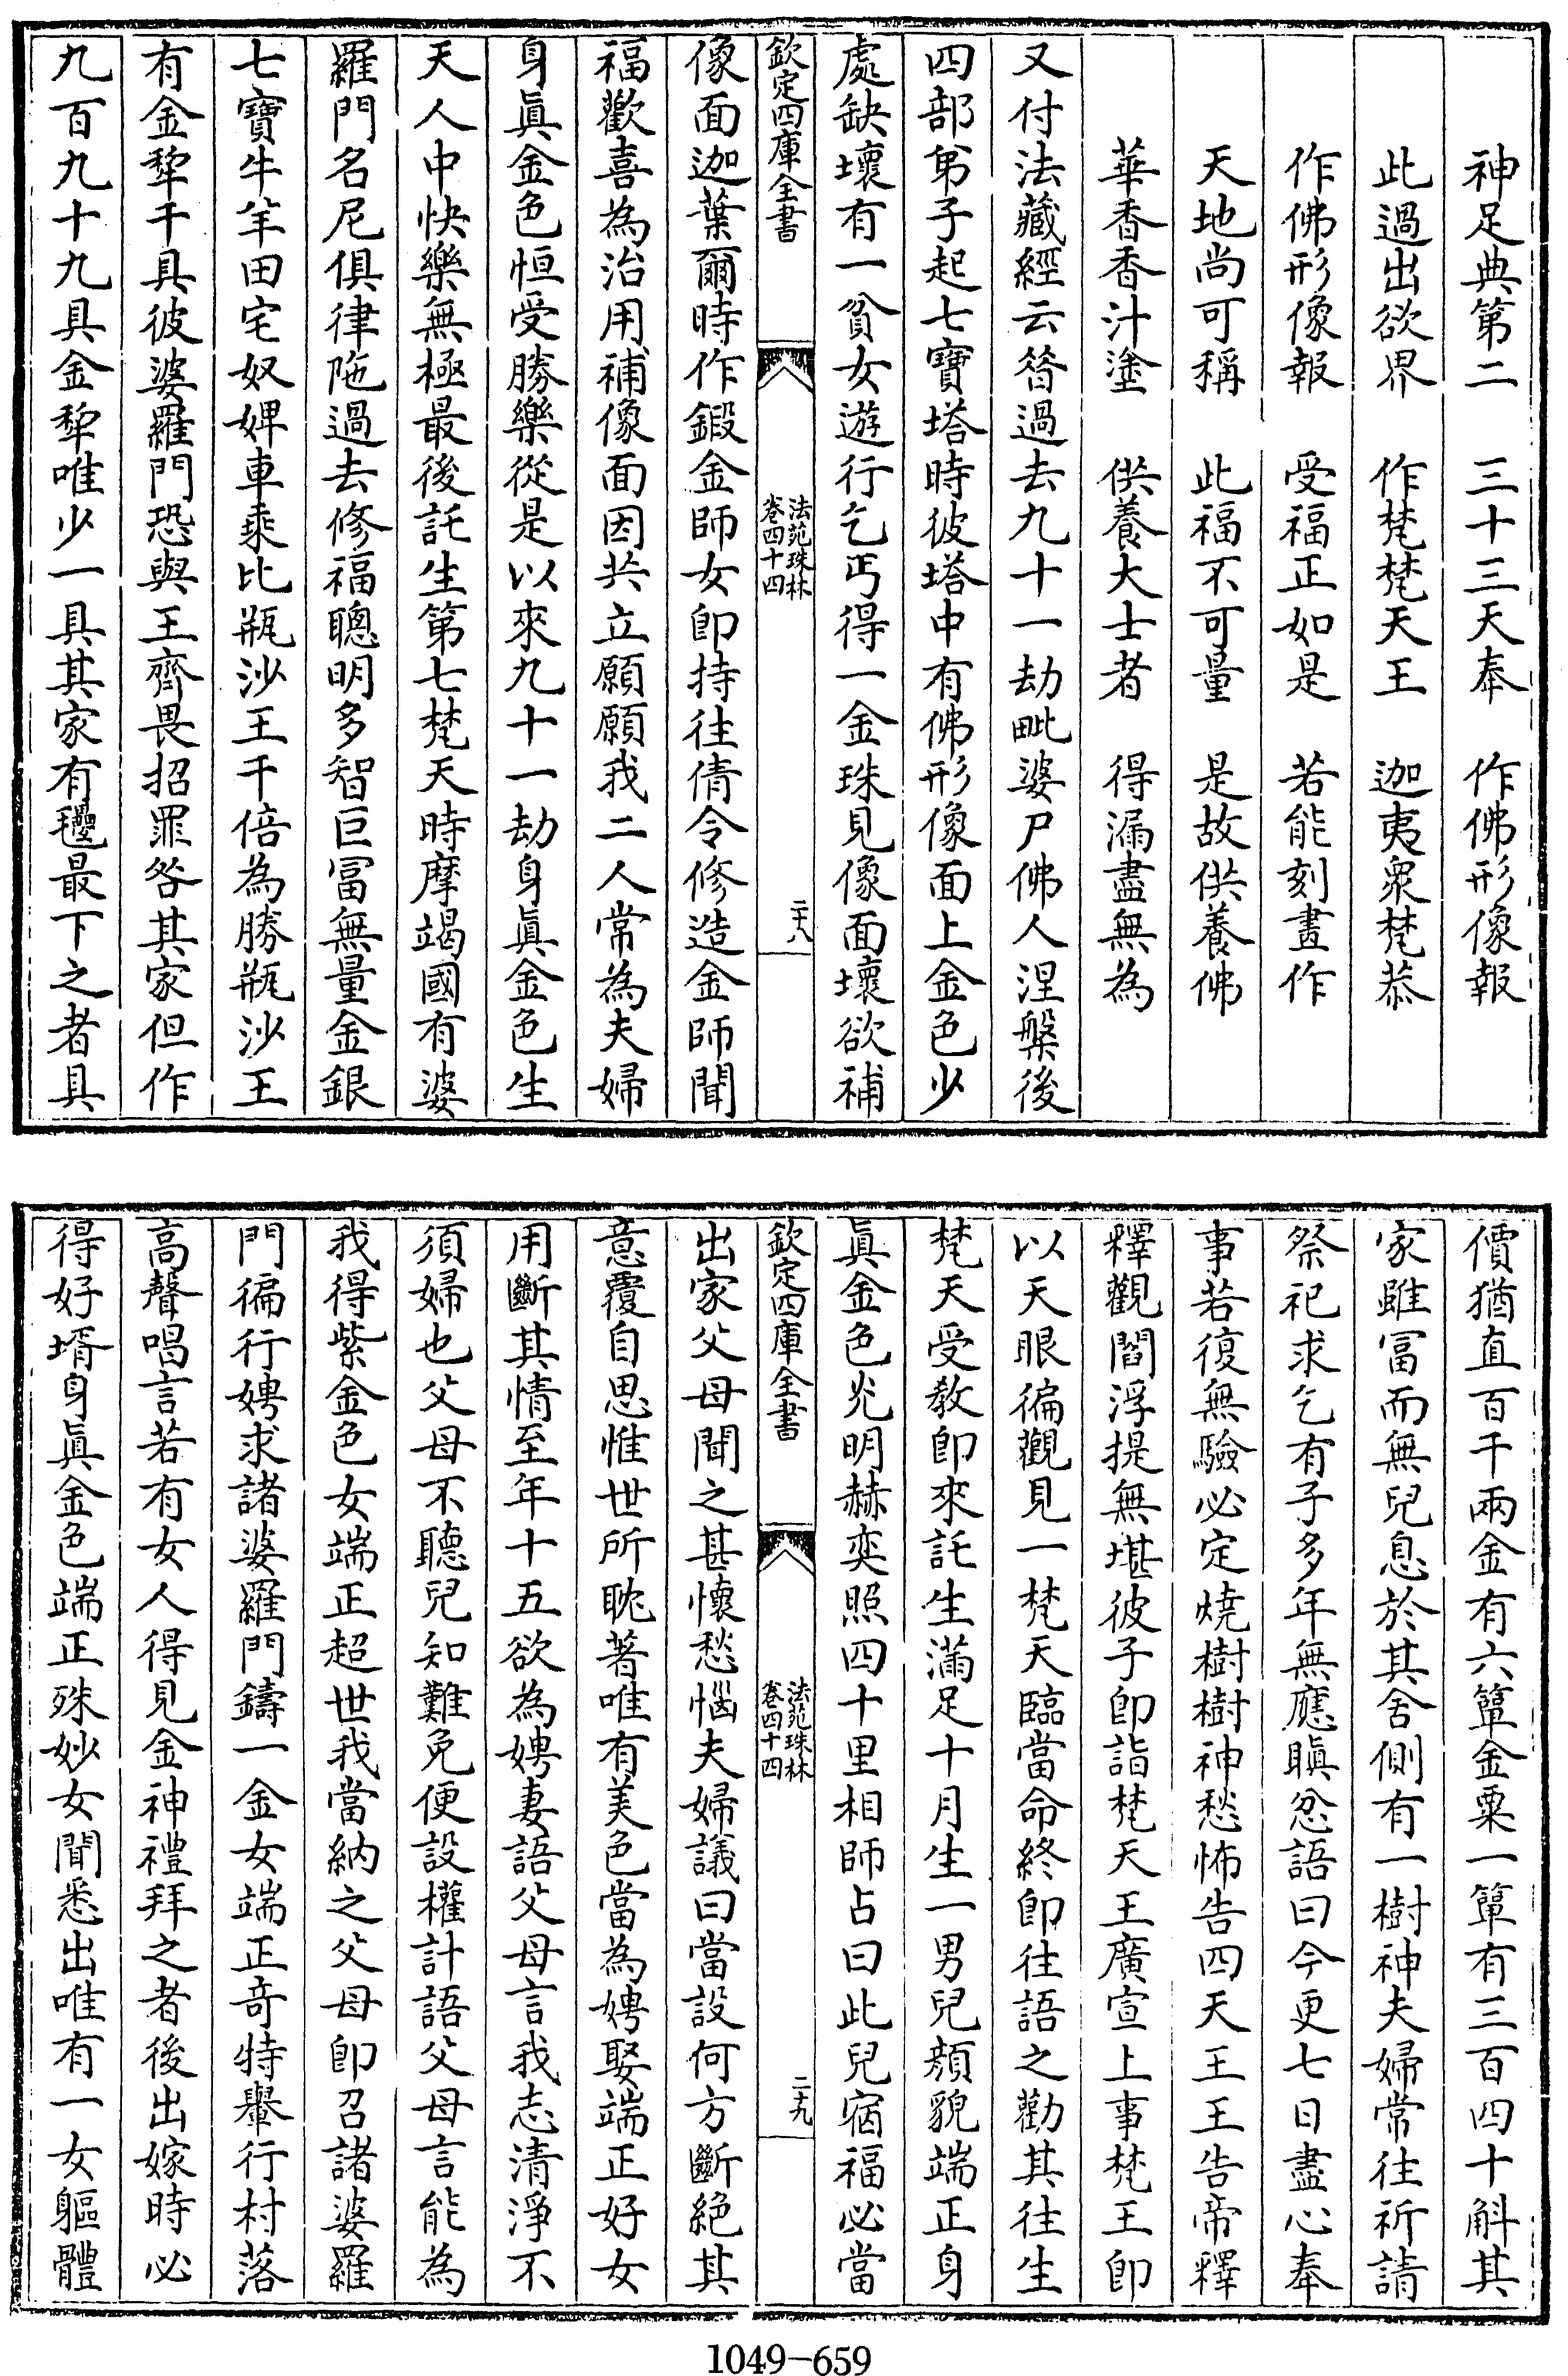 神足典第二　三十三天奉　作佛形像報
此過出欲界　作梵梵天王　迦夷衆梵恭
作佛形像報　受福正如是　若能刻畫作
天地尚可稱　此福不可量　是故供養佛
華香香汁塗　供養大士者　得漏盡無為
又付法藏經云昝過去九十一劫毗婆尸佛人涅槃後
四部弟子起七寶塔時彼塔中有佛形像面上金色少
處缺壞有一貧女遊行乞丐得一金珠見像面壞欲補
欽定四庫全書
法苑珠林
卷四十四
二十八
像面迦葉爾時作鍛金師女即持往倩令修造金師聞
福歡喜為治用補像面因共立願願我二人常為夫婦
身眞金色恒受勝樂從是以來九十一劫身眞金色生
天人中快樂無極最後託生第七梵天時摩竭國有婆
羅門名尼俱律陁過去修福聰明多智巨冨無量金銀
七寶牛羊田宅奴婢車乘比瓶沙王千倍為勝瓶沙王
有金犂千具彼婆羅門恐與王齊畏招罪咎其家但作
九百九十九具金犂唯少一具其家有㲲最下之者具
價猶直百千兩金有六簞金粟一簞有三百四十斛其
家雖冨而無兒息於其舍側有一樹神夫婦常往祈請
祭祀求乞有子多年無應瞋忿語曰今更七日盡心奉
事若復無驗必定燒樹樹神愁怖告四天王王告帝釋
釋觀閻浮提無堪彼子即詣梵天王廣宣上事梵王即
以天眼徧觀見一梵天臨當命終即往語之勸其往生
梵天受教即來託生滿足十月生一男兒顏貌端正身
眞金色光明赫奕照四十里相師占曰此兒宿福必當
欽定四庫全書
法苑珠林
卷四十四
二十九
出家父母聞之甚懷愁惱夫婦議曰當設何方斷絕其
意覆自思惟世所躭著唯有美色當為娉娶端正好女
用斷其情至年十五欲為娉妻語父母言我志清淨不
須婦也父母不聽兒知難免便設權計語父母言能為
我得紫金色女端正超世我當納之父母即召諸婆羅
門徧行娉求諸婆羅門鑄一金女端正奇特轝行村落
高聲唱言若有女人得見金神禮拜之者後出嫁時必
得好壻身眞金色端正殊妙女聞悉出唯有一女軀體
1049-659